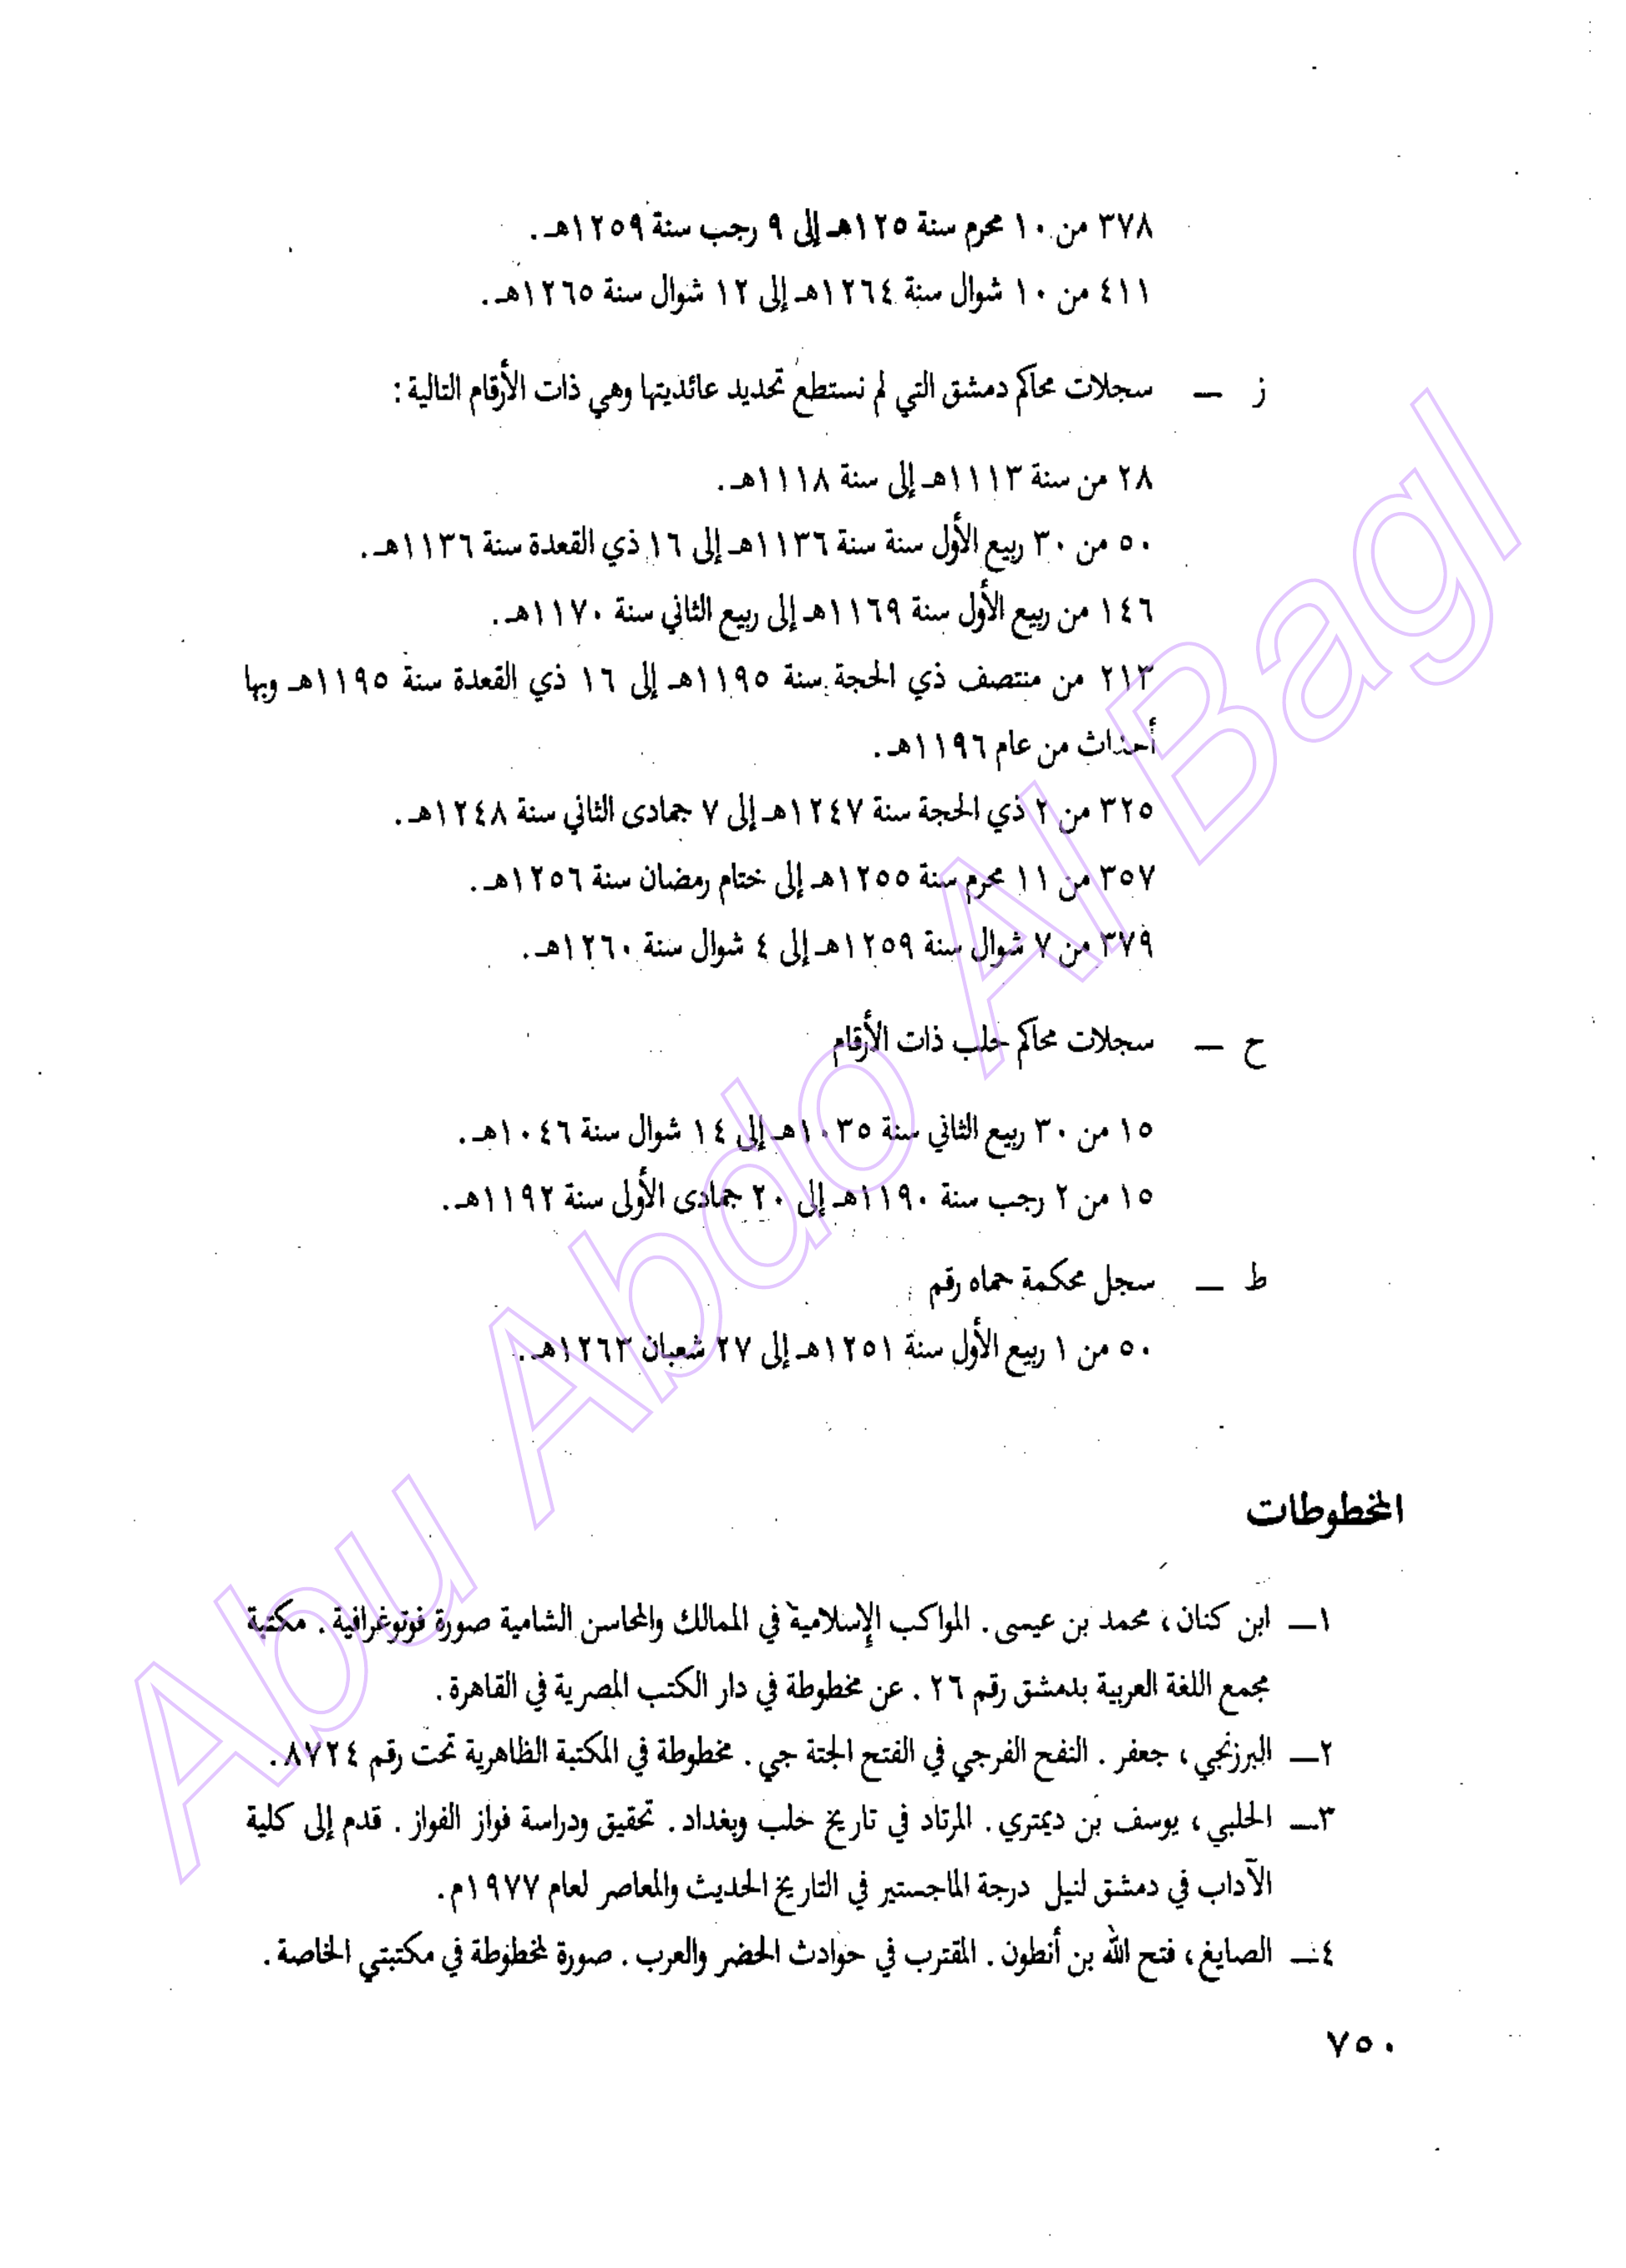 ٣٧٨ من ١٠ محرم سنة ١٢٥هـ إلى ٩ رجب سنة ١٢٥٩هـ.
٤١١ من ١٠ شوال سنة ١٢٦٤هـ إلى ١٢ شوال سنة ١٢٦٥هـ.
ز — سجلات محاكم دمشق التي لم نستطع تحديد عائديتها وهي ذات الأرقام التالية:
٢٨ من سنة ١١١٣هـ إلى سنة ١١١٨هـ.
٥٠ من ٣٠ ربيع الأول سنة سنة ١١٣٦هـ إلى ١٦ ذي القعدة سنة ١١٣٦هـ.
١٤٦ من ربيع الأول سنة ١١٦٩هـ إلى ربيع الثاني سنة ١١٧٠هـ.
٢١٣ من منتصف ذي الحجة سنة ١١٩٥هـ إلى ١٦ ذي القعدة سنة ١١٩٥هـ وبها
أحداث من عام ١١٩٦هـ.
٣٢٥ من ٢ ذي الحجة سنة ١٢٤٧هـ إلى ٧ جمادى الثاني سنة ١٢٤٨هـ.
٣٥٧ من ١١ محرم سنة ١٢٥٥هـ إلى ختام رمضان سنة ١٢٥٦هـ.
٣٧٩ من ٧ شوال سنة ١٢٥٩هـ إلى ٤ شوال سنة ١٢٦٠هـ.
ح — سجلات محاكم حلب ذات الأرقام
١٥ من ٣٠ ربيع الثاني سنة ١٠٣٥هـ إلى ١٤ شوال سنة ١٠٤٦هـ.
١٥ من ٢ رجب سنة ١١٩٠هـ إلى ٢٠ جمادى الأولى سنة ١١٩٢هـ.
ط — سجل محكمة حماه رقم
٥٠ من ١ ربيع الأول سنة ١٢٥١هـ إلى ٢٧ شعبان ١٢٦٣هـ.
المخطوطات
١— ابن كنان، محمد بن عيسى. المواكب الإسلامية في الممالك والمحاسن الشامية صورة فوتوغرافية. مكتبة
مجمع اللغة العربية بدمشق رقم ٢٦. عن مخطوطة في دار الكتب المصرية في القاهرة.
٢— البرزنجي، جعفر. النفح الفرجي في الفتح الجتة جي. مخطوطة في المكتبة الظاهرية تحت رقم ٨٧٢٤.
٣— الحلبي، يوسف بن ديمتري. المرتاد في تاريخ حلب وبغداد. تحقيق ودراسة فواز الفواز. قدم إلى كلية
الآداب في دمشق لنيل درجة الماجستير في التاريخ الحديث والمعاصر لعام ١٩٧٧م.
٤— الصايغ، فتح الله بن أنطون. المقترب في حوادث الحضر والعرب. صورة لمخطوطة في مكتبتي الخاصة.
٧٥٠
Abu Abdo Al Bagl